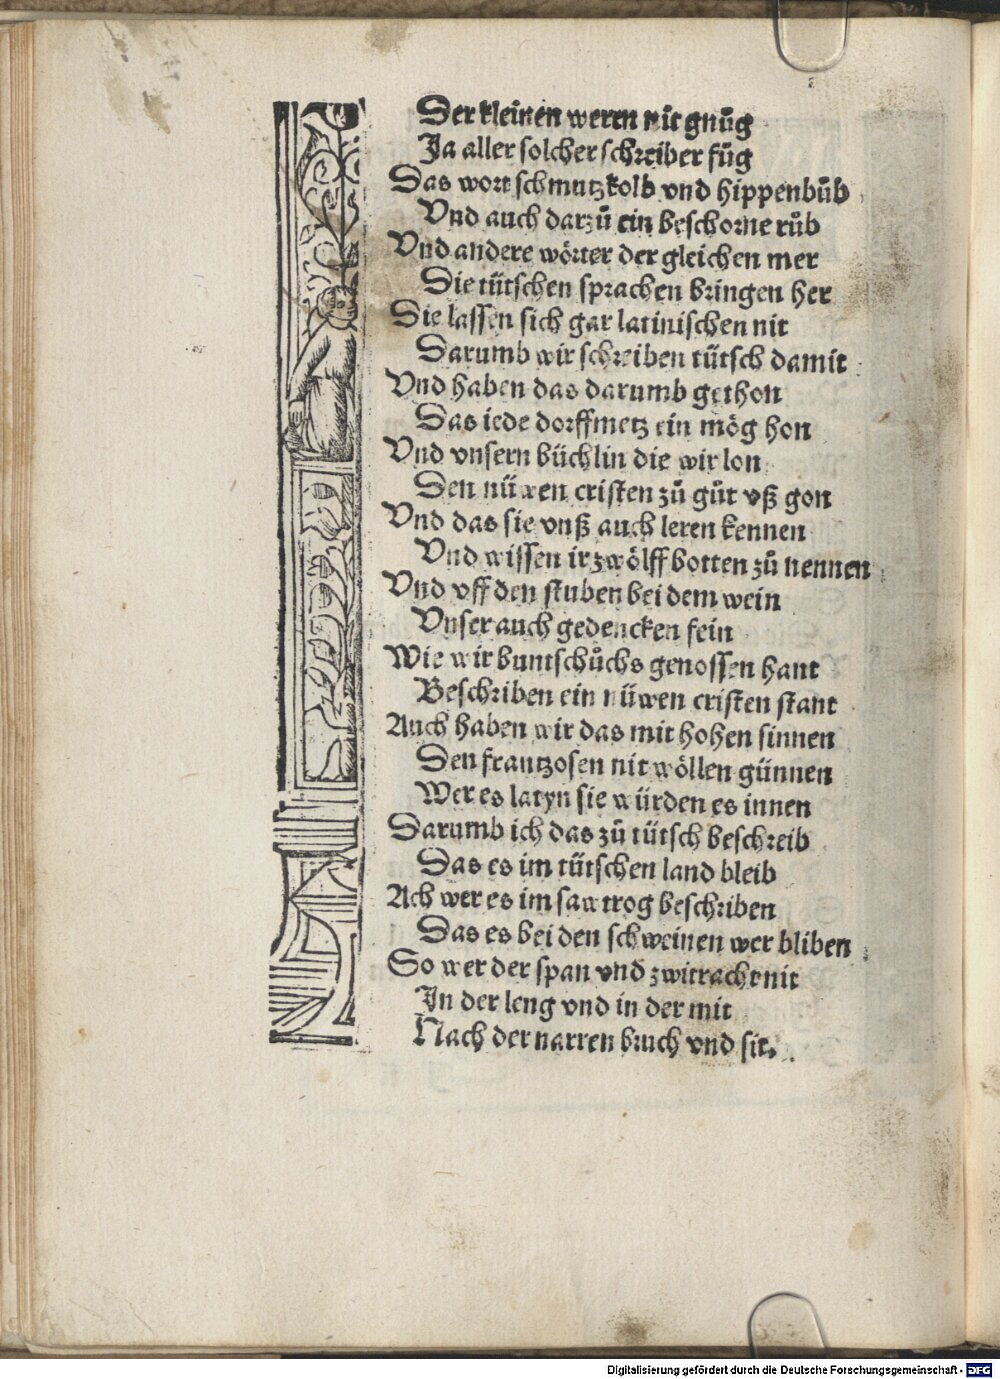 Der kleinen weren nit gnůg
Ja aller solcher schreiber fůg
Das wort schmutzkolb vnd hippenbůb
Vnd auch darzů ein beschorne růb
Vnd andere wörter der gleichen mer
Die tütschen sprachen bringen her
Die lassen sich gar latinischen nit
Darumb wir schreiben tütsch damit
Vnd haben das darumb gethon
Das iede dorffmetz ein mög hon
Vnd vnsern büchlin die wir lon
Den nüwen cristen zů gůt vß gon
Vnd das sie vnß auch leren kennen
Vnd wissen ir zwölff botten zů nennen
Vnd vff den stuben bei dem wein
Vnser auch gedencken fein
Wie wir buntschůchs genossen hant
Beschriben ein nüwen cristen stant
Auch haben wir das mit hohen sinnen
Den frantzosen nit wöllen günnen
Wer es latyn sie würden es innen
Darumb ich das zů tütsch beschreib
Das es im tütschen land bleib
Ach wer es im saw trog beschriben
Das es bei den schweinen wer bliben
So wer der span vnd zwitracht nit
In der leng vnd in der mit
Nach der narren bruch vnd sit.
Digitalisierung gefördert durch die Deutsche Forschungsgemeinschaft - DFG